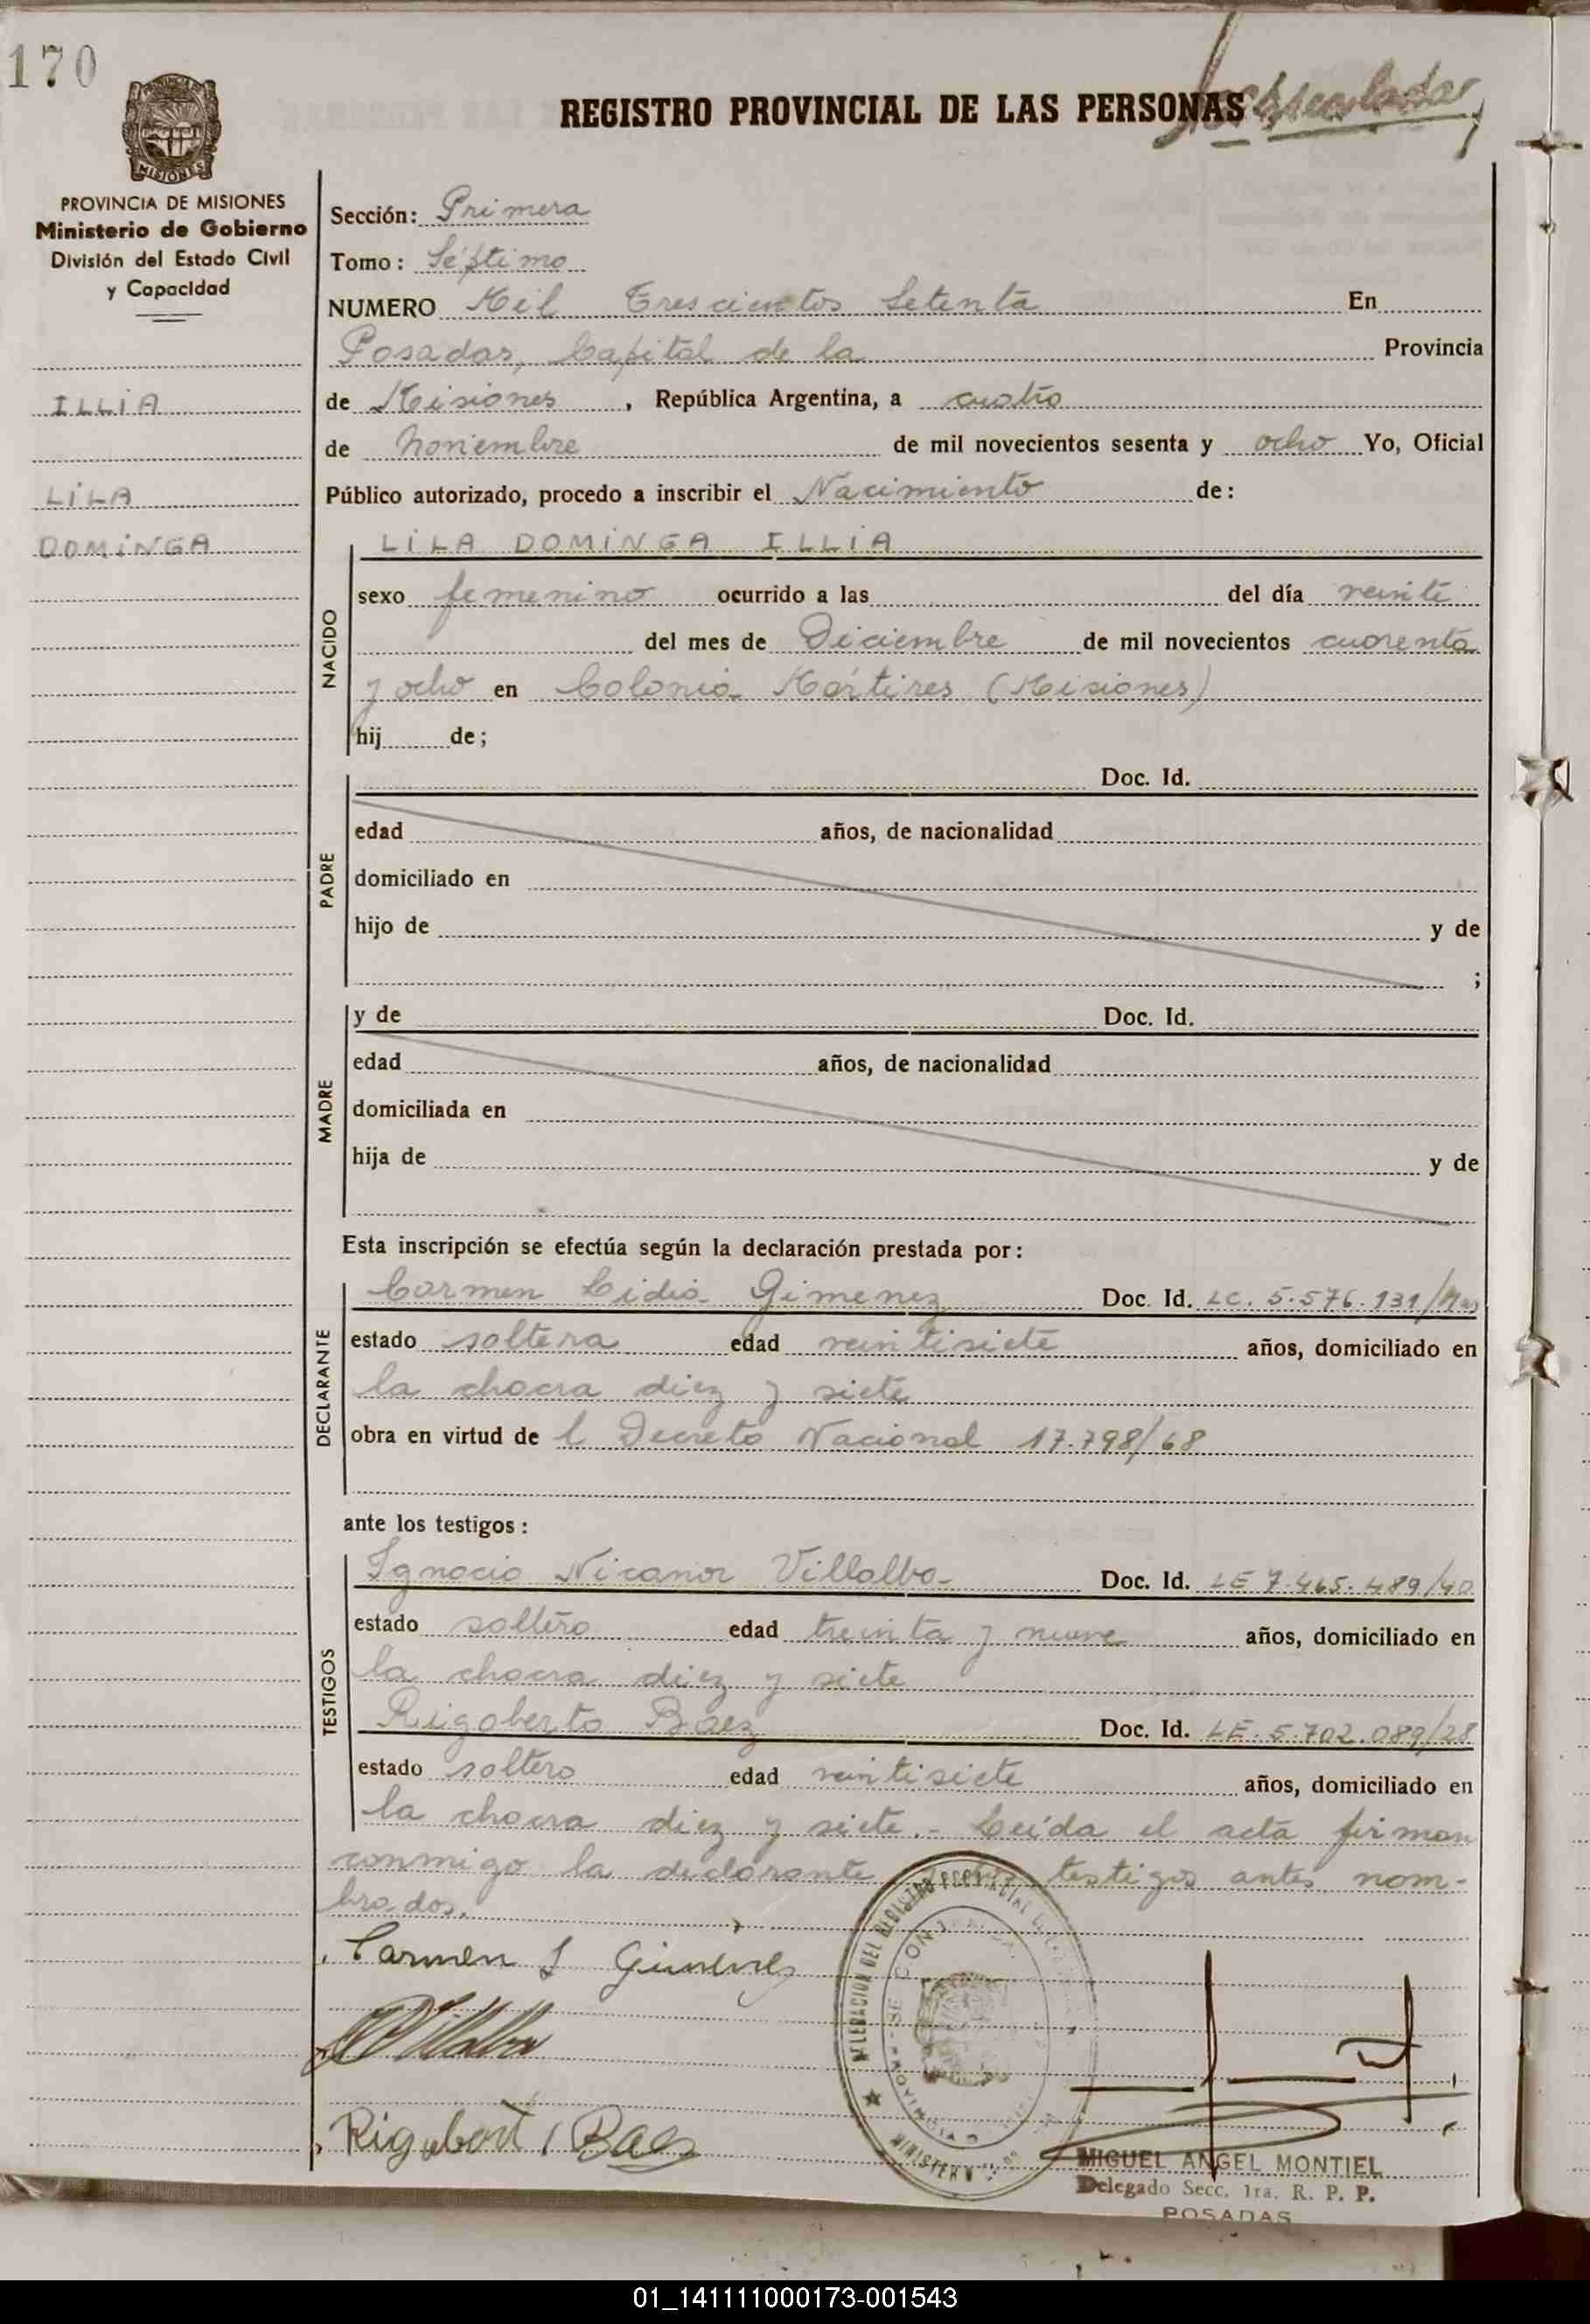 170
REGISTRO PROVINCIAL DE LAS PERSONAS
PROVINCIA DE MISIONES
Ministerio de Gobierno
División del Estado Civil
y Capacidad
ILLIA
LILA
DOMINGA
Sección: Primera
Tomo: Séptimo
NUMERO Mil Trescientos Setenta En
Posadas, Capital de la Provincia
de Misiones, República Argentina, a cuatro
de Noviembre de mil novecientos sesenta y ocho Yo, Oficial
Público autorizado, procedo a inscribir el Nacimiento de:
LILA DOMINGA ILLIA
NACIDO
sexo femenino ocurrido a las del día veinte
del mes de Diciembre de mil novecientos cuarenta
y ocho en Colonia Mártires (Misiones)
hij de;
PADRE
Doc. Id.
edad años, de nacionalidad
domiciliado en
hijo de y de
;
MADRE
y de Doc. Id.
edad años, de nacionalidad
domiciliada en
hija de y de
Esta inscripción se efectúa según la declaración prestada por:
DECLARANTE
Carmen Lidia Gimenez Doc. Id. LC. 5.576.131
estado soltera edad veintisiete años, domiciliado en
la chacra diez y siete
obra en virtud de l Decreto Nacional 17.798/68
ante los testigos:
TESTIGOS
Ignacio Nicanor Villalba Doc. Id. LE 7.465.489/40
estado soltero edad treinta y nueve años, domiciliado en
la chacra diez y siete
Rigoberto Baez Doc. Id. LE. 5.702.089/28
estado soltero edad veintisiete años, domiciliado en
la chacra diez y siete.- Leída el acta firman
conmigo la declarante testigos antes nom-
brados.
Carmen L Gimenez
Villalba
Rigoberto Baez
MIGUEL ANGEL MONTIEL
Delegado Secc. 1ra. R. P. P.
POSADAS
01_141111000173-001543